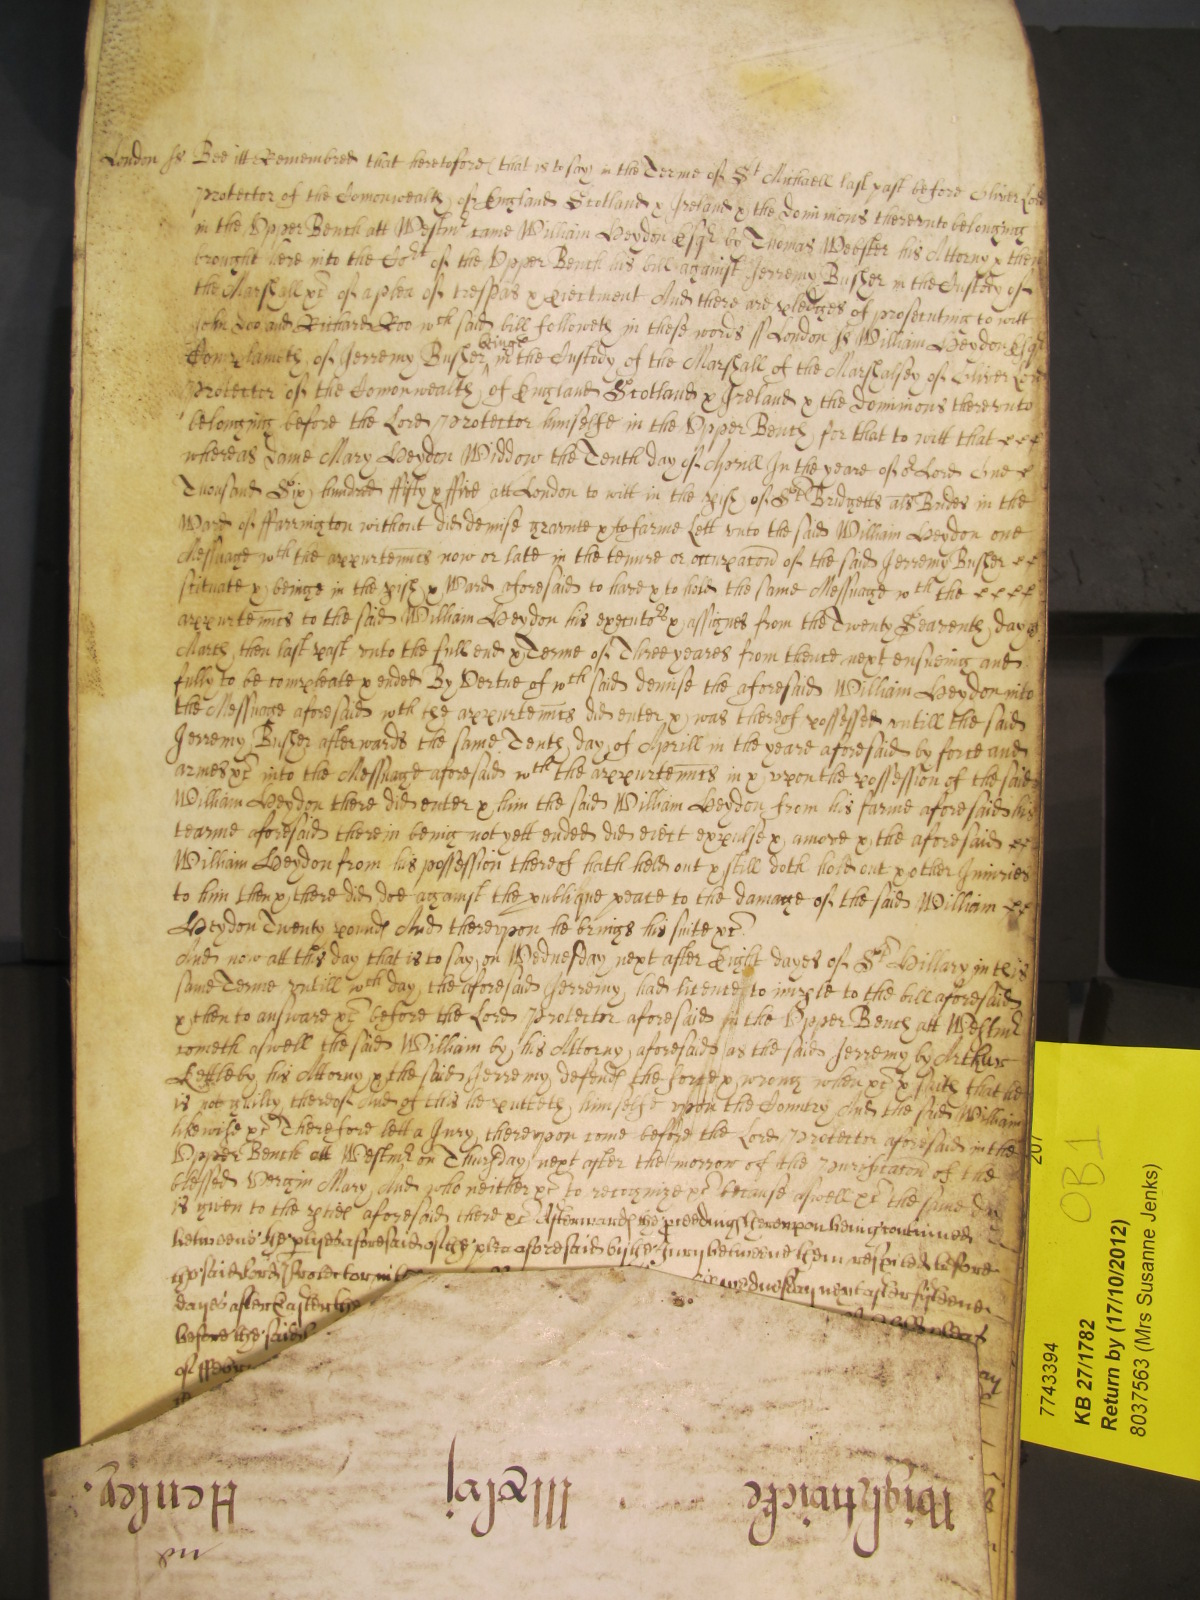 London ss Bee itt Remembred that heretofore (that is to say) in the Terme of St Michaell last past before Oliver Lord
Protector of the Comonwealth of England Scotland & Ireland & the Dominions therevnto belonging
in the Vpper Bench att Westmr came William Heydon Esqr by Thomas Weefker his Attorny & then
brought here into the Cort of the Vpper Bench his bill against Jerremy Busher in the Custody of
the Marshall &c of a plea of trespas & Ejectment And there are pledges of prosecuting to witt
John Doo and Richard Roo wch said bill followeth in these words ss London ss William Heydon Esqr
Complaineth of Jerremy Busher beinge in the Custody of the Marshall of the Marshalsey of Oliver Lord
Protector of the Comonwealth of England Scotland & Ireland & the Dominions therevnto
belonging before the Lord Protector himselfe in the Vpper Bench for that to witt that
whereas Dame Mary Heydon Widdow the Tenth day of Aprill In the yeare of or Lord One
Thousand Six hundred ffifty & ffive att London to witt in the pish of St Bridgetts als Brides in the
Ward of ffarrington without did demise graunte & to farme Lett vnto the said William Heydon one
Messuage wth the appurtennces now or late in the tenure or occupacon of the said Jerremy Busher
scituate & beinge in the pish & Ward aforesaid to have & to hold the same Messuage wth the
appurtennces to the said William Heydon his executors & assignes from the Twenty Seaventh day of
March then last past vnto the full end & Terme of Three yeares from thence next ensueing and
fully to be compleate & ended By Vertue of wch said demise the aforesaid William Heydon into
the Messuage aforesaid wth the appurtennces did enter & was thereof possessed vntill the said
Jerremy Busher afterwards the same Tenth day of Aprill in the yeare aforesaid by force and
armes &c into the Messuage aforesaid wth the appurtennces in & vpon the possession of the said
William Heydon there did enter & him the said William Heydon from his farme aforesaid his
tearme aforesaid therein being not yett ended did eiect expulse & amove & the aforesaid
William Heydon from his possession thereof hath held out & still doth hold out & other Iniuries
to him then & there did doe against the publique peace to the damage of the said William
Heydon Twenty pounds And therevpon he brings his suite &c
And now att this day that is to say on Wednesday next after Eight dayes of St Hillary in this
same Terme vntill wch day the aforesaid Jerremy had licence to imple to the bill aforesaid
& then to answare &c before the Lord Protector aforesaid in the Vpper Bench att Westmr
cometh aswell the said William by his Attorny aforesaid as the said Jerremy by Arthur
Kettleby his Attorny & the said Jerremy defends the force & wrong when &c & saith that he
is not guilty thereof And of this he putteth himselfe vpon the Country And the said William
likewise &c Therefore lett a Jury therevpon come before the Lord Protector aforesaid in the
Vpper Bench att Westmr on Thursday next after the morrow of the Purificacon of the
blessed Vergin Mary And who neither &c to recognize &c because aswell &c the same day
is given to the pties aforesaid there &c Afterwards the pceedings therevpon being continued
betweene the pties aforesaid of the plea aforesaid by the Jury betweene them respited before
the said Lord Protector wednesday next after fifteene
dayes after Easter
before the said
of
Henley.
Wightwicke
7743394
KB 27/1782
Return by (17/10/2012)
8037563 (Mrs Susanne Jenks)
OB1
207